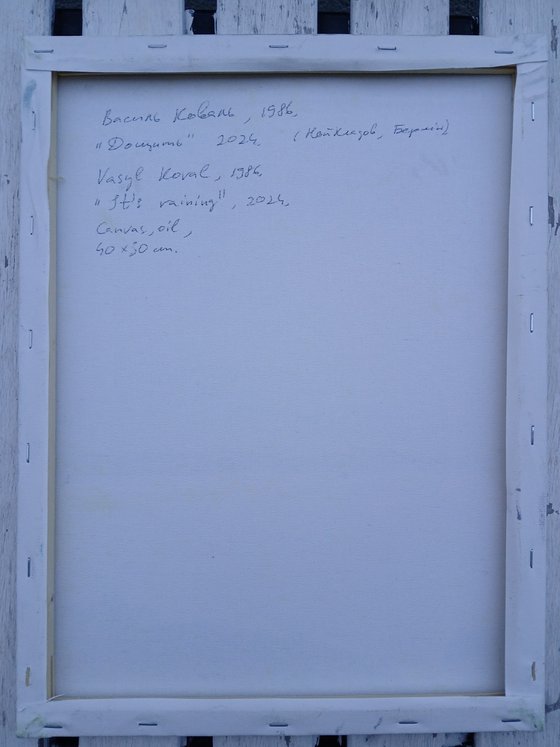 Василь Коваль, 1986,
"Дощить" 2024, (Нойкладов, Берлін)
Vasyl Koval, 1986,
"It's raining", 2024,
Canvas, oil,
40 x 50 cm.